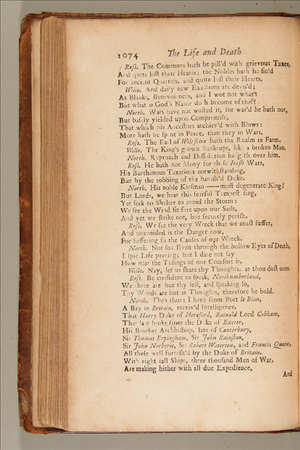 1074 The Life and Death
Ross. The Commons hath he pill'd with grievous Taxes,
And quite lost their Hearts; the Nobles hath he fin'd
For ancient Quarrels, and quite lost their Hearts.
Willo. And daily new Exactions are devis'd;
As Blanks, Benevolences, and I wot not what:
But what o God's Name doth become of this?
North. Wars have not wasted it, for war'd he hath not,
But basely yielded upon Compromise,
That which his Ancestors atchiev'd with Blows:
More hath he spent in Peace, than they in Wars.
Ross. The Earl of Wiltshire hath the Realm in Farm.
Willo. The King's grown Bankrupt, like a broken Man.
North. Reproach and Dissolution hangeth over him.
Ross. He hath not Mony for these Irish Wars,
His Burthenous Taxations notwithstanding,
But by the robbing of the banish'd Duke.
North. His noble Kinsman — most degenerate King!
But Lords, we hear this fearful Tempest sing,
Yet seek no Shelter to avoid the Storm:
We see the Wind sit sore upon our Sails,
And yet we strike not, but securely perish.
Ross. We see the very Wreck that we must suffer,
And unavoided is the Danger now,
For suffering so the Causes of our Wreck.
North. Not so: Even through the hollow Eyes of Death,
I spie Life peering; but I dare not say
How near the Tidings of our Comfort is.
Willo. Nay, let us share thy Thoughts, as thou dost ours.
Ross. Be confident to speak, Northumberland,
We three are but thy self, and speaking so,
Thy Words are but as Thoughts, therefore be bold.
North. Then thus: I have from Port le Blan,
A Bay in Britain, receiv'd Intelligence,
That Harry Duke of Hereford, Rainald Lord Cobham,
That late broke from the Duke of Exeter,
His Brother Archbishop, late of Canterbury,
Sir Thomas Erpingham, Sir John Rainston,
Sir John Norberie, Sir Robert Waterton, and Francis Quoin,
All these well furnish'd by the Duke of Britain,
With eight tall Ships, three thousand Men of War,
Are making hither with all due Expedience,
And